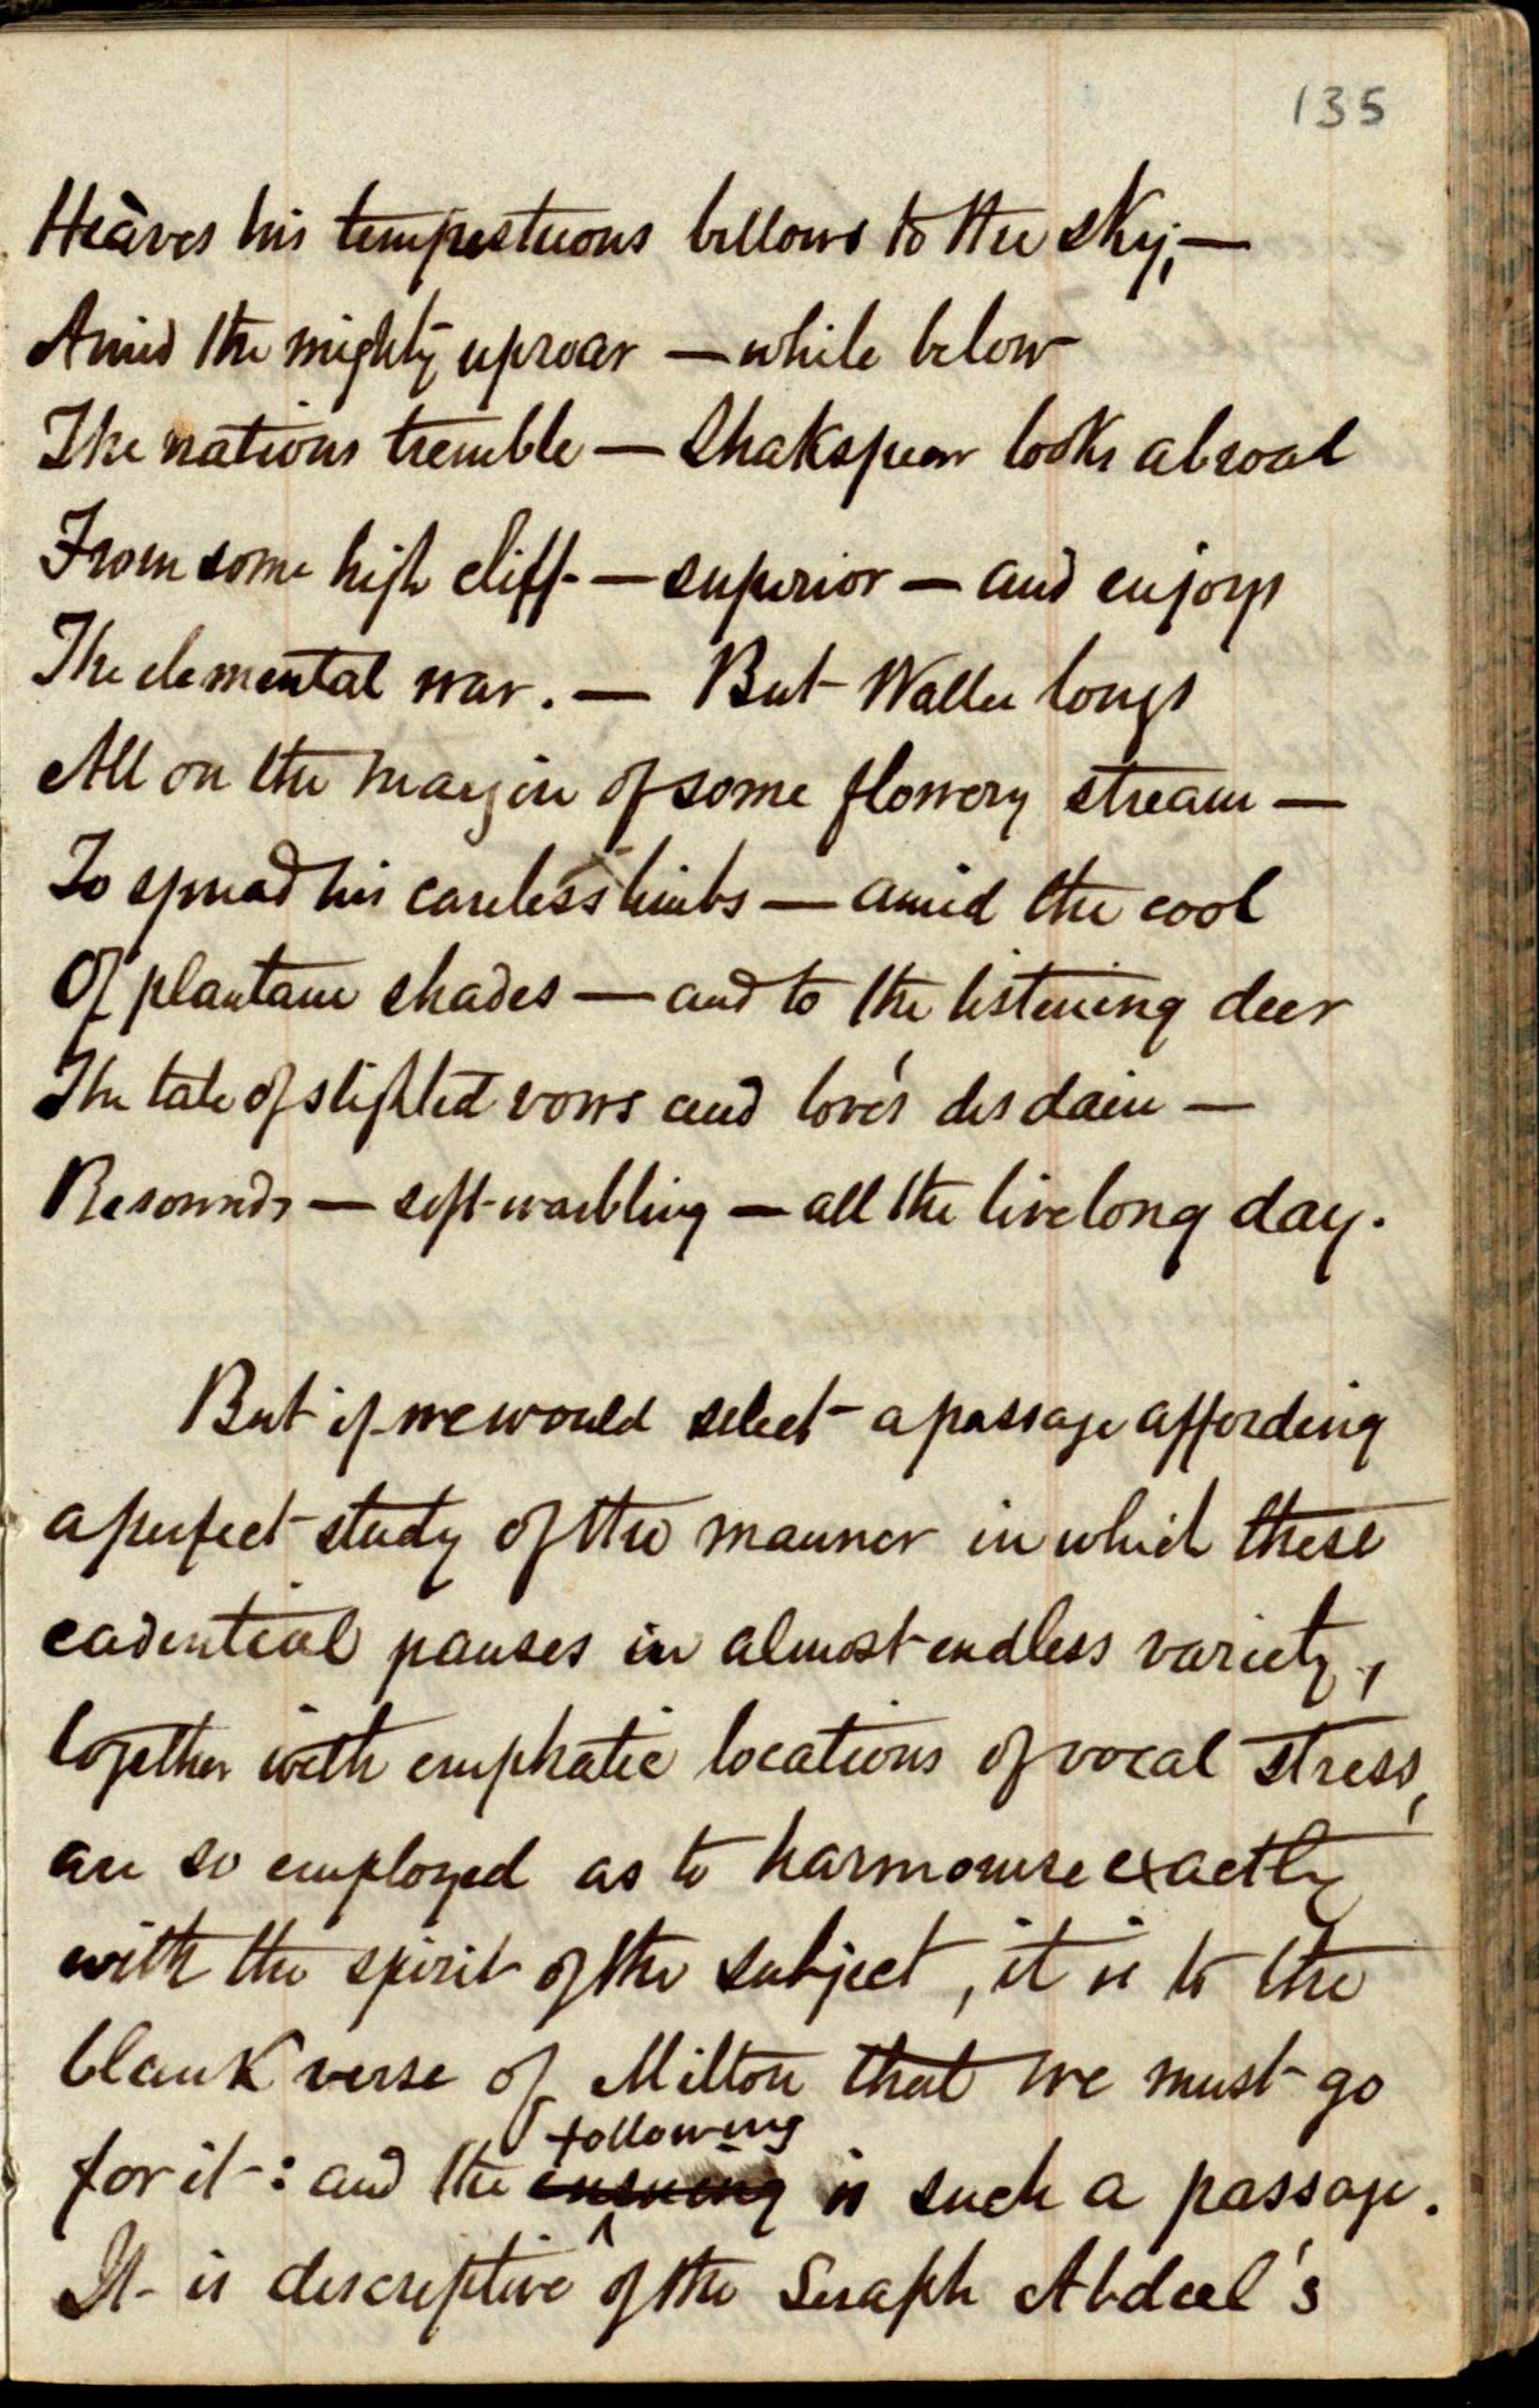 135
Heàves his tempestuous billows to the sky;—
Amid the mighty uproar — while below
The nations tremble — Shakspear looks abroad
From some high cliff — superior — and enjoys
The elemental war. — But Waller longs
All on the margin of some flowery stream —
To spread his careless limbs — amid the cool
Of plantane shades — and to the listening deer
The tale of slighted vows and love's disdain —
Resounds — soft-warbling — all the livelong day.
But if we would select a passage affording
a perfect study of the manner in which these
cadential pauses in almost endless variety,
together with emphatic locations of vocal stress,
are so employed as to harmonise exactly
with the spirit of the subject, it is to the
blank verse of Milton that we must go
following
for it: and the ensuing is such a passage.
It is descriptive of the Seraph Abdeel's